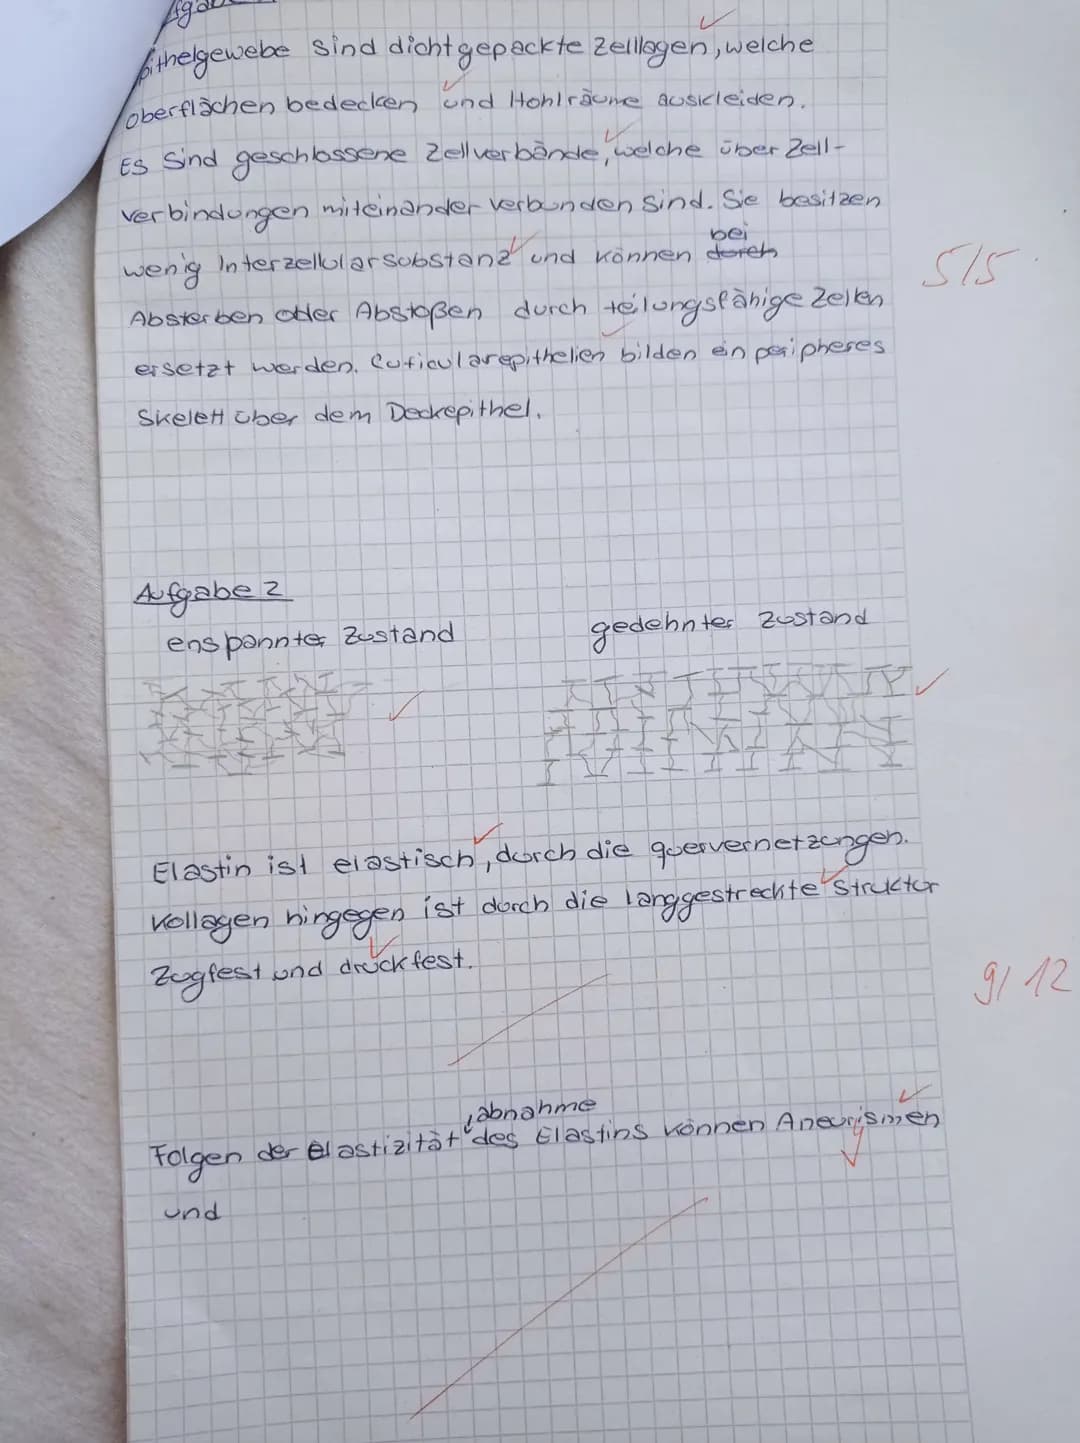 ithelgewebe sind dichtgepackte Zelllagen, welche
oberflächen bedecken und Hohlräume auskleiden.
Es sind geschlossene Zellverbände, welche über Zell-
verbindungen miteinander verbunden sind. Sie besitzen
bei
wenig Interzellularsubstanz und können durch
Absterben oder Abstoßen durch teilungsfähige Zellen
ersetzt werden. Cuticularepithelien bilden ein peripheres
Skelett über dem Deckepithel.
5/5
Aufgabe 2
enspannter Zustand
gedehnter Zustand
Elastin ist elastisch, durch die quervernetzungen.
Kollagen hingegen ist durch die langgestreckte Struktur
Zugfest und druckfest.
9/12
abnahme
Folgen der elastizität des Elastins können Aneurismen
y
und